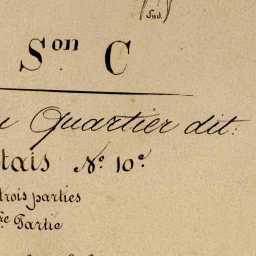 Sud.
Son C
Quartier dit:
tais N.° 10e
trois parties
re Partie